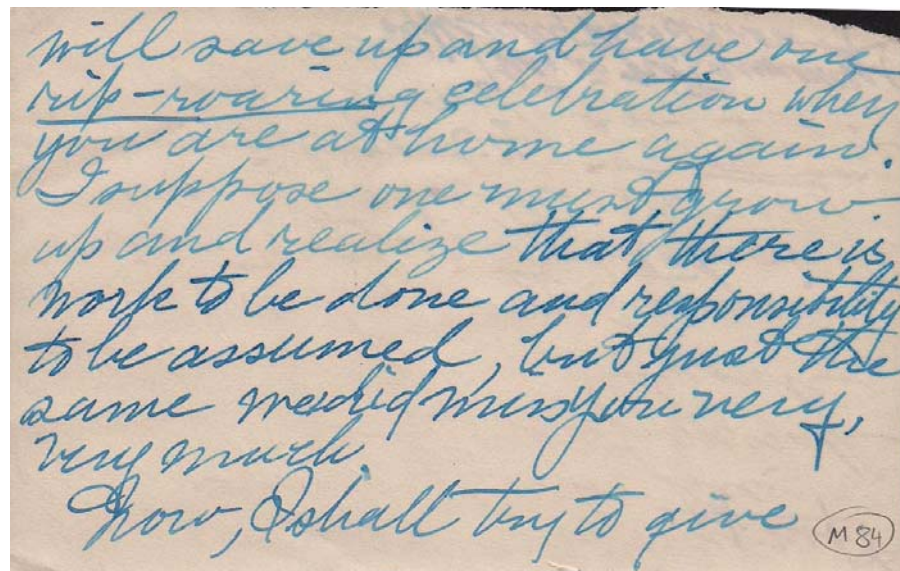 will save up and have one
rip-roaring celebration when
you are at home again.
I suppose one must grow
up and realize that there is
work to be done and responsibility
to be assumed, but just the
same we did miss you very,
very much.
Now, I shall try to give
M 84